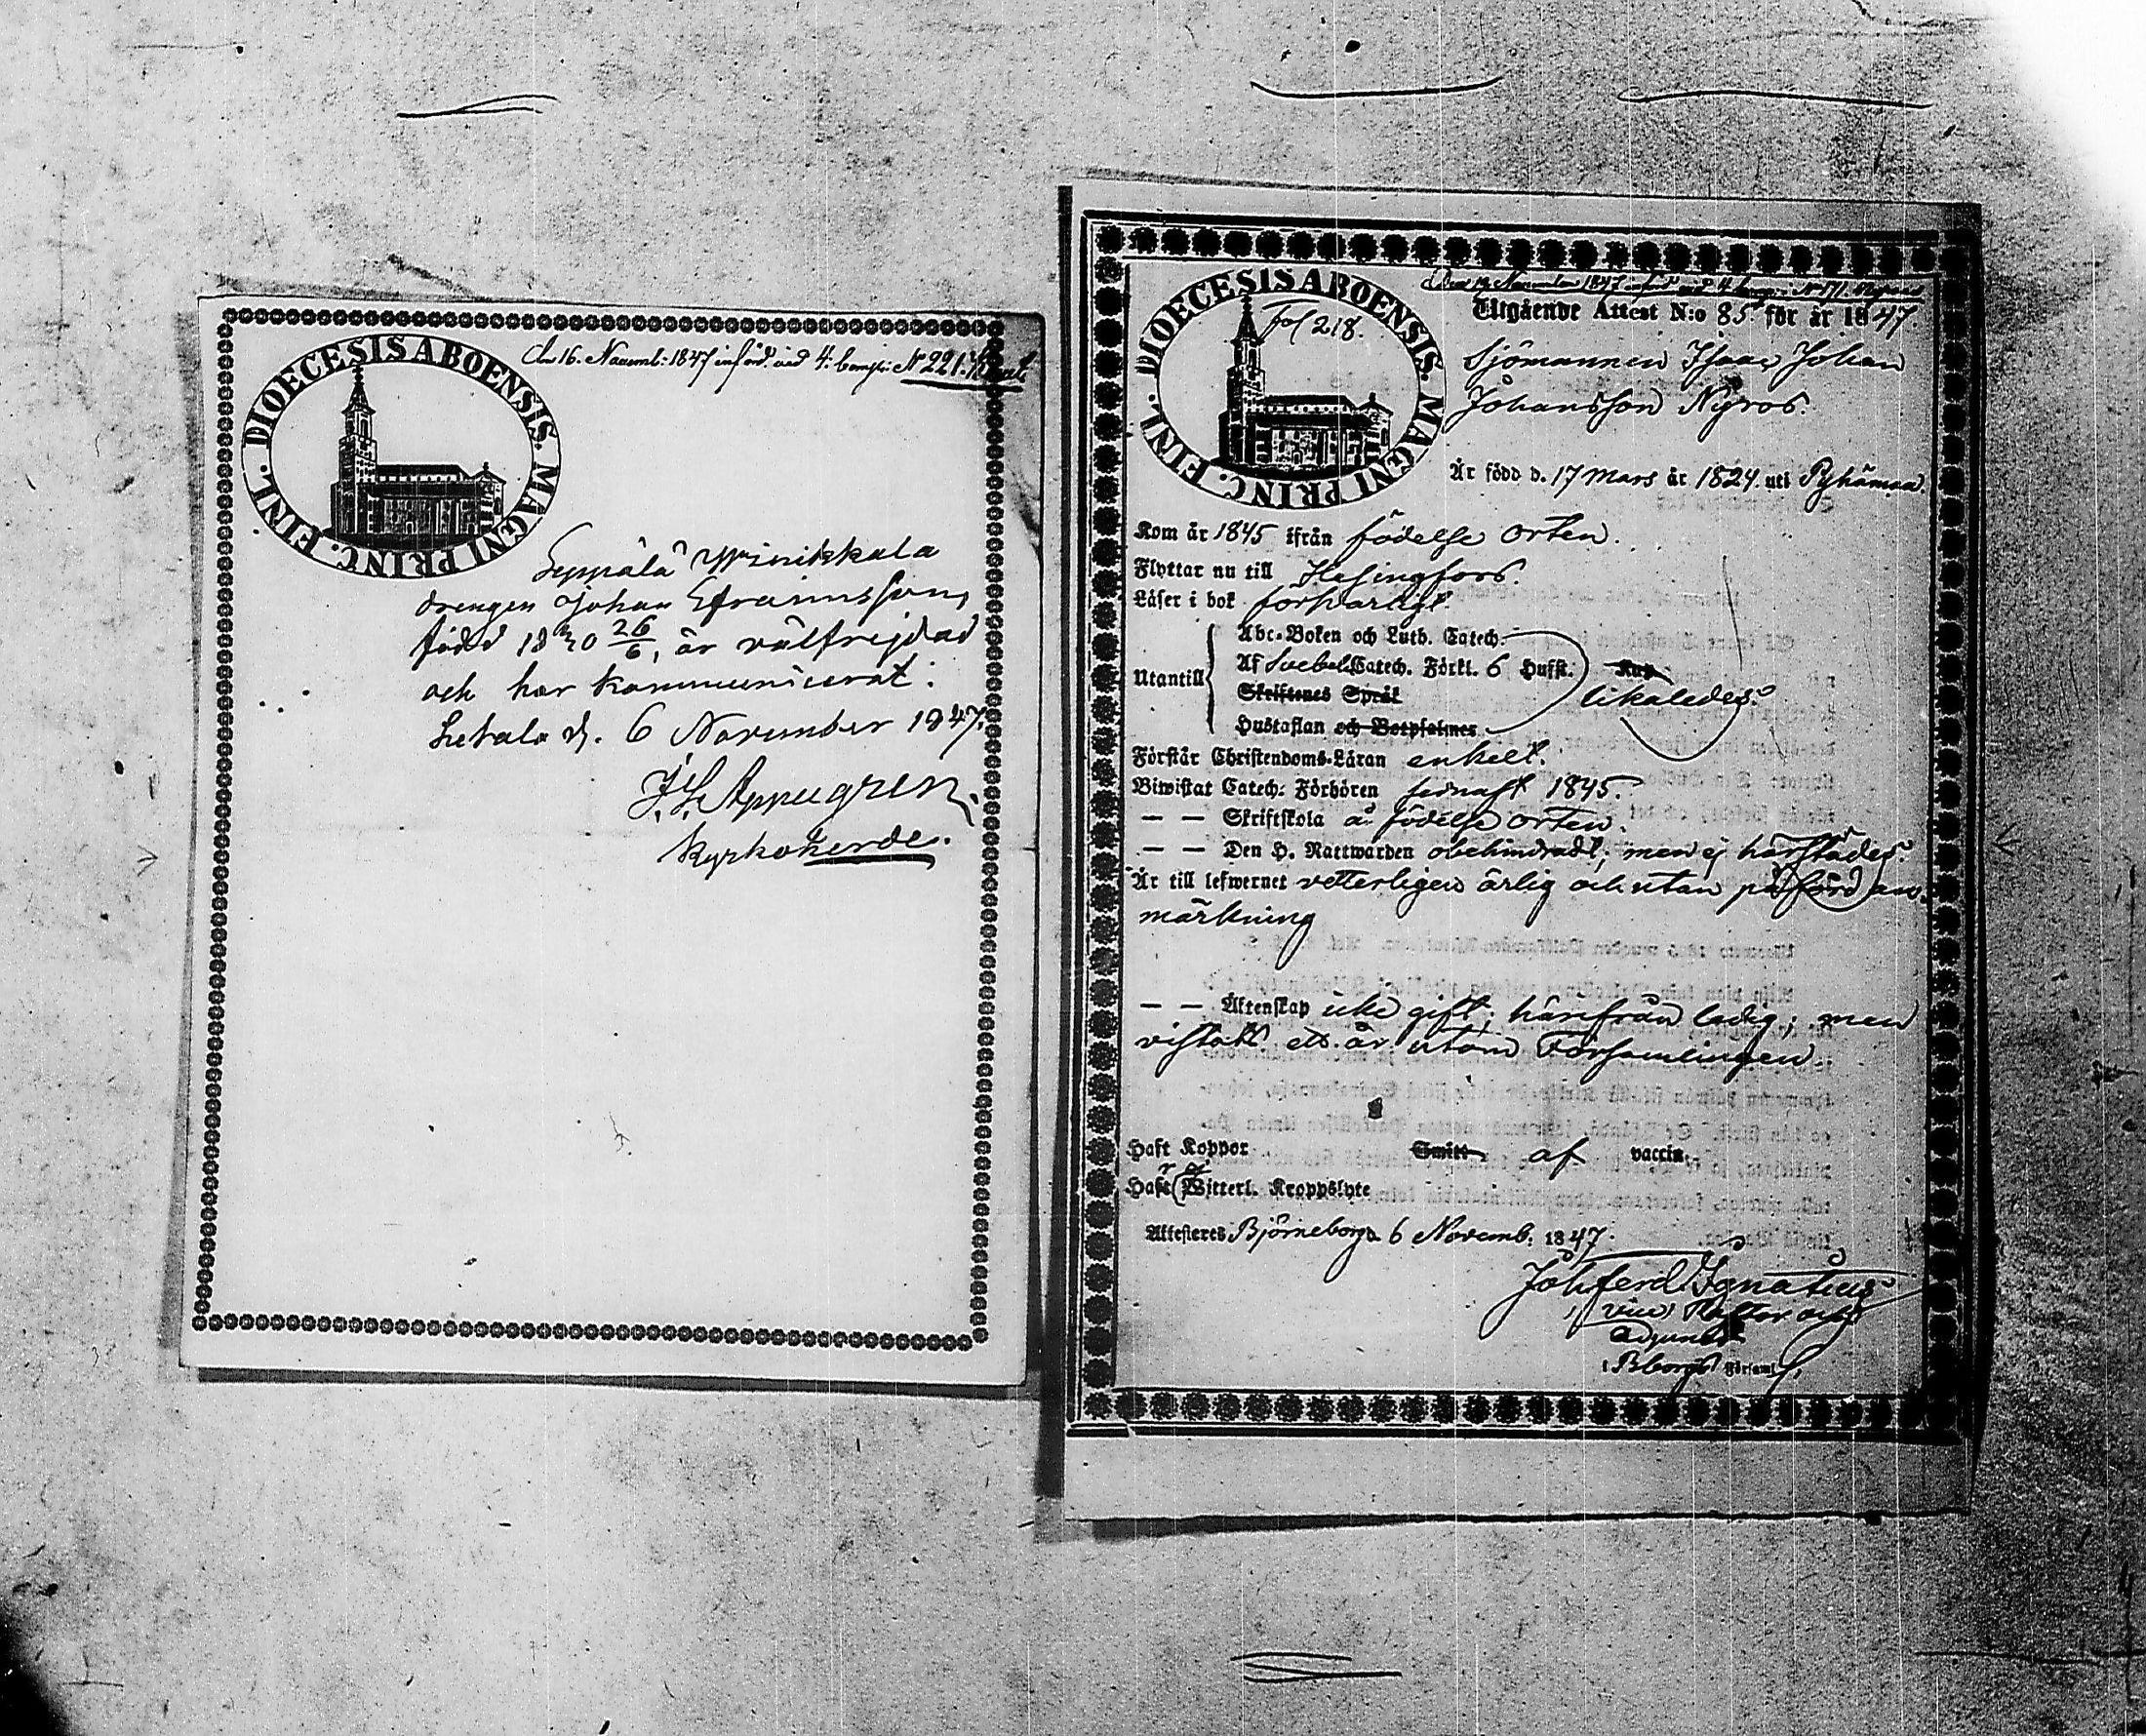 DIOECESIS ABOENSIS. MAGNI PRINC. FINL.
den 16. Novemb: 1847 införd. vid 4. komp: N 221.
Seppälä
drengen Johan Efraimsson,
född 1830 26/6, är välfrejdad
och har kommunicerat.
Letala d. 6 November 1847.
J. L. Appelgren,
Kyrkoherde.
DIOECESIS ABOENSIS. MAGNI PRINC. FINL.
Fol 218.
Den November 1847 införd vid 4 komp: N 171.
Utgående Attest N:o 85 för år 1847.
Sjömannen Isaac Johan
Johansson Nyroos.
Är född d. 17 Mars år 1824. uti Pyhämaa.
Kom år 1845 ifrån födelse orten.
Flyttar nu till Helsingfors.
Läser i bok försvarligt.
Utantill
Abc-Boken och Luth. Catech.
Af Svebel. Catech. Förkl. 6 Hufst.
Skriftenes Språk
Hustaflan och Botpsalmer
likaledes.
Förstår Christendoms-Läran enkelt.
Biwistat Catech: Förhören sednast 1845.
— — Skriftskola å födelse orten.
— — Den H. Nattwarden obehindradt, men ej härstädes.
Är till lefwernet vetterligen ärlig och utan påförd an-
märkning
— — Äktenskap icke gift; härifrån ledig; men
vistats ett år utom Församlingen.
Haft Koppor Smitt af vaccin.
Haft Witterl. Kroppslyte
Attesteres Björneborg d. 6 Novemb: 1847.
Joh ferd Ignatius
vice Pastor och
adjunkt
i Bborgs Församl.